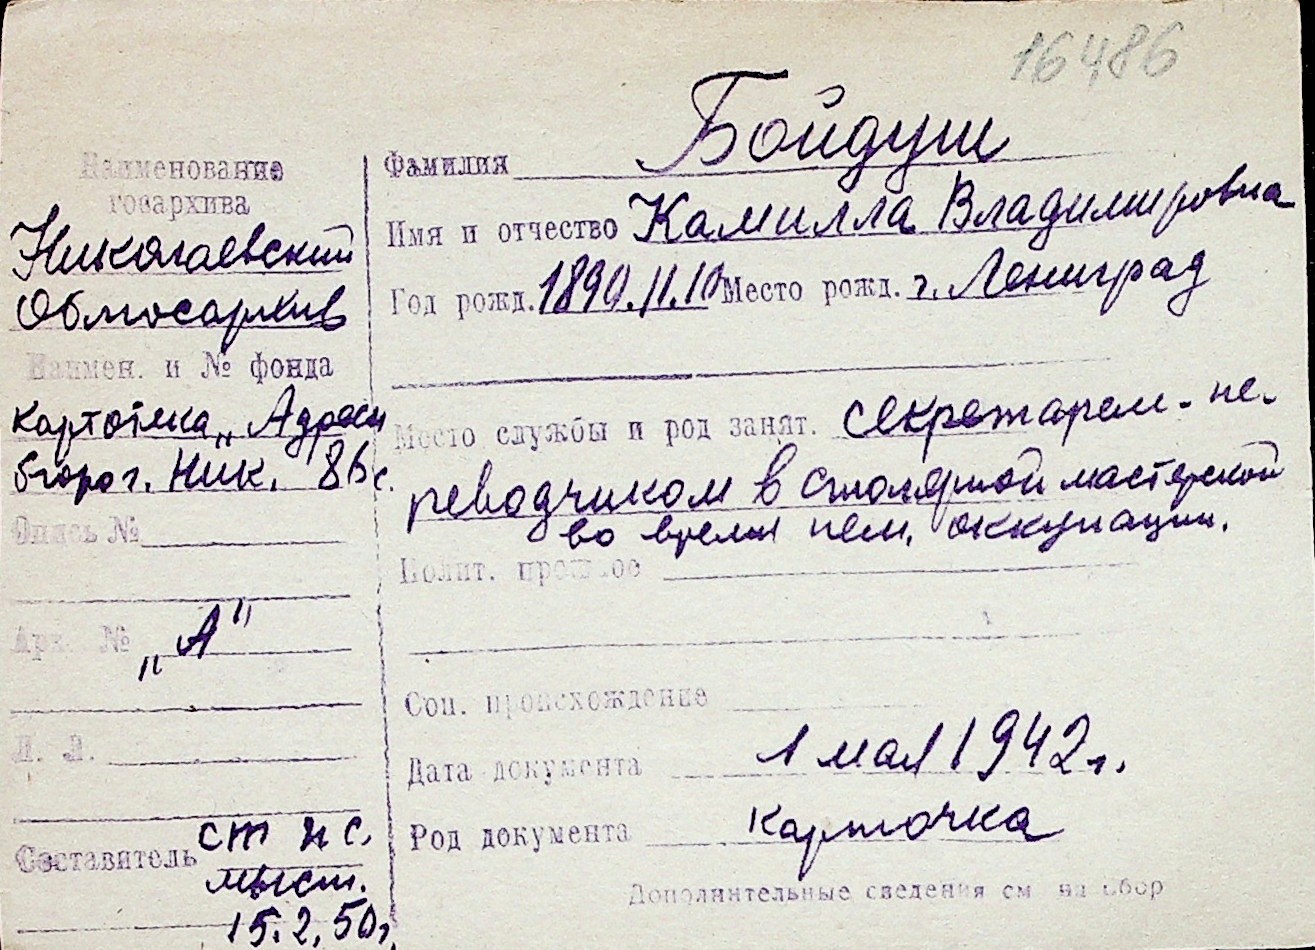 16486
Наименование
госархива
Николаевский
Облгосархив
Наимен. и № фонда
картотека „Адресн
бюро г. Ник. 86 с.
Опись №
Арх. № „А"
Л. Л.
Составитель ст н с.
15.2.50г.
Фамилия Бойдуш
Имя и отчество Камилла Владимировна
Год рожд. 1890.11.10 Место рожд. г. Ленинград
Место службы и род занят. секретарем-пе-
реводчиком в столярной мастерской
во время нем. оккупации.
Полит. прошлое
Соц. происхождение
Дата документа 1 мая 1942 г.
Род документа карточка
Дополнительные сведения см на обор